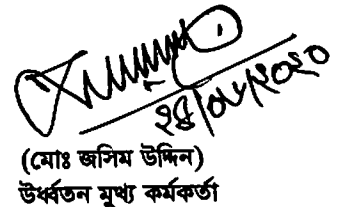 ২৪/০৮/২০২০
(মোঃ জসিম উদ্দিন)
উর্ধ্বতন মুখ্য কর্মকর্তা